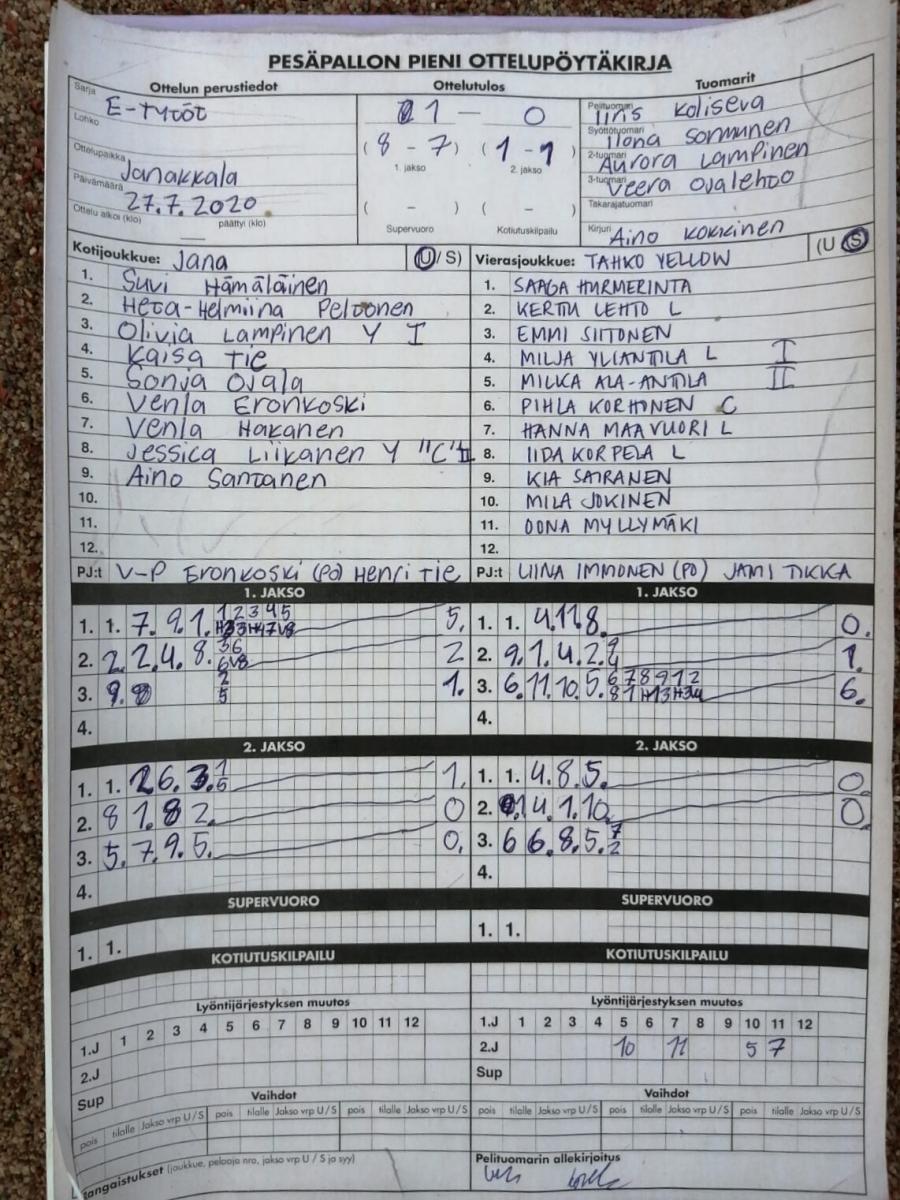 PESÄPALLON PIENI OTTELUPÖYTÄKIRJA
Ottelun perustiedot Ottelutulos Tuomarit
Sarja E-TYTÖT 1 — 0 Pelituomari Iiris Koliseva
Lohko Syöttötuomari Ilona Sormunen
(8 - 7) (1 - 1)
1. jakso 2. jakso
2-tuomari Aurora Lampinen
Ottelupaikka Janakkala 3-tuomari Veera Ojalehto
Päivämäärä 27.7.2020 ( - ) ( - ) Takarajatuomari
Ottelu alkoi (klo) — päättyi (klo) Supervuoro Kotiutuskilpailu Kirjuri Aino Kokkinen
Kotijoukkue: Jana (U/S) Vierasjoukkue: TAHKO YELLOW (U S)
1. Suvi Hämäläinen 1. SAAGA HURMERINTA
2. Heta-Helmiina Peltonen 2. KERTTU LEHTO L
3. Olivia Lampinen Y I 3. EMMI SIITONEN
4. Kaisa Tie 4. MILJA YLIANTTILA L I
5. Sonja Ojala 5. MILKA ALA-ANTTILA II
6. Venla Eronkoski 6. PIHLA KORHONEN C
7. Venla Hakanen 7. HANNA MAAVUORI L
8. Jessica Liikanen Y "C" II 8. IIDA KORPELA L
9. Aino Santanen 9. KIA SAIRANEN
10. 10. MILA JOKINEN
11. 11. OONA MYLLYMÄKI
12. 12.
PJ:t V-P Eronkoski (PJ) Henri Tie PJ:t LIINA IMMONEN (PJ) JAMI TIKKA
1. JAKSO 1. JAKSO
1. 1. 7. 9. 1. 1 2 3 4 5 5. 1. 1. 4. 11. 8. 0.
2. 2. 2. 4. 8. 3 6 2 2. 9. 1. 4. 2. 1.
6 V8
3. 9. 2 1. 3. 6. 11. 10. 5. 6 7 8 9 1 2 6.
5
4. 4.
2. JAKSO 2. JAKSO
1. 1. 2 6. 3. 1 1. 1. 1. 4. 8. 5. 0
5
2. 8 1. 8 2. 0 2. 1 4. 1. 10. 0
3. 5. 7. 9. 5. 0. 3. 6 6. 8. 5. 7
2
4. 4.
SUPERVUORO SUPERVUORO
1. 1. 1. 1.
KOTIUTUSKILPAILU KOTIUTUSKILPAILU
Lyöntijärjestyksen muutos Lyöntijärjestyksen muutos
1.J 1 2 3 4 5 6 7 8 9 10 11 12 1.J 1 2 3 4 5 6 7 8 9 10 11 12
2.J 2.J 10 11 5 7
Sup Sup
Vaihdot Vaihdot
pois tilalle Jakso vrp U/S pois tilalle Jakso vrp U/S pois tilalle Jakso vrp U/S pois tilalle Jakso vrp U/S pois tilalle Jakso vrp U/S pois tilalle Jakso vrp U/S
Rangaistukset (joukkue, pelaaja nro, jakso vrp U / S ja syy) Pelituomarin allekirjoitus